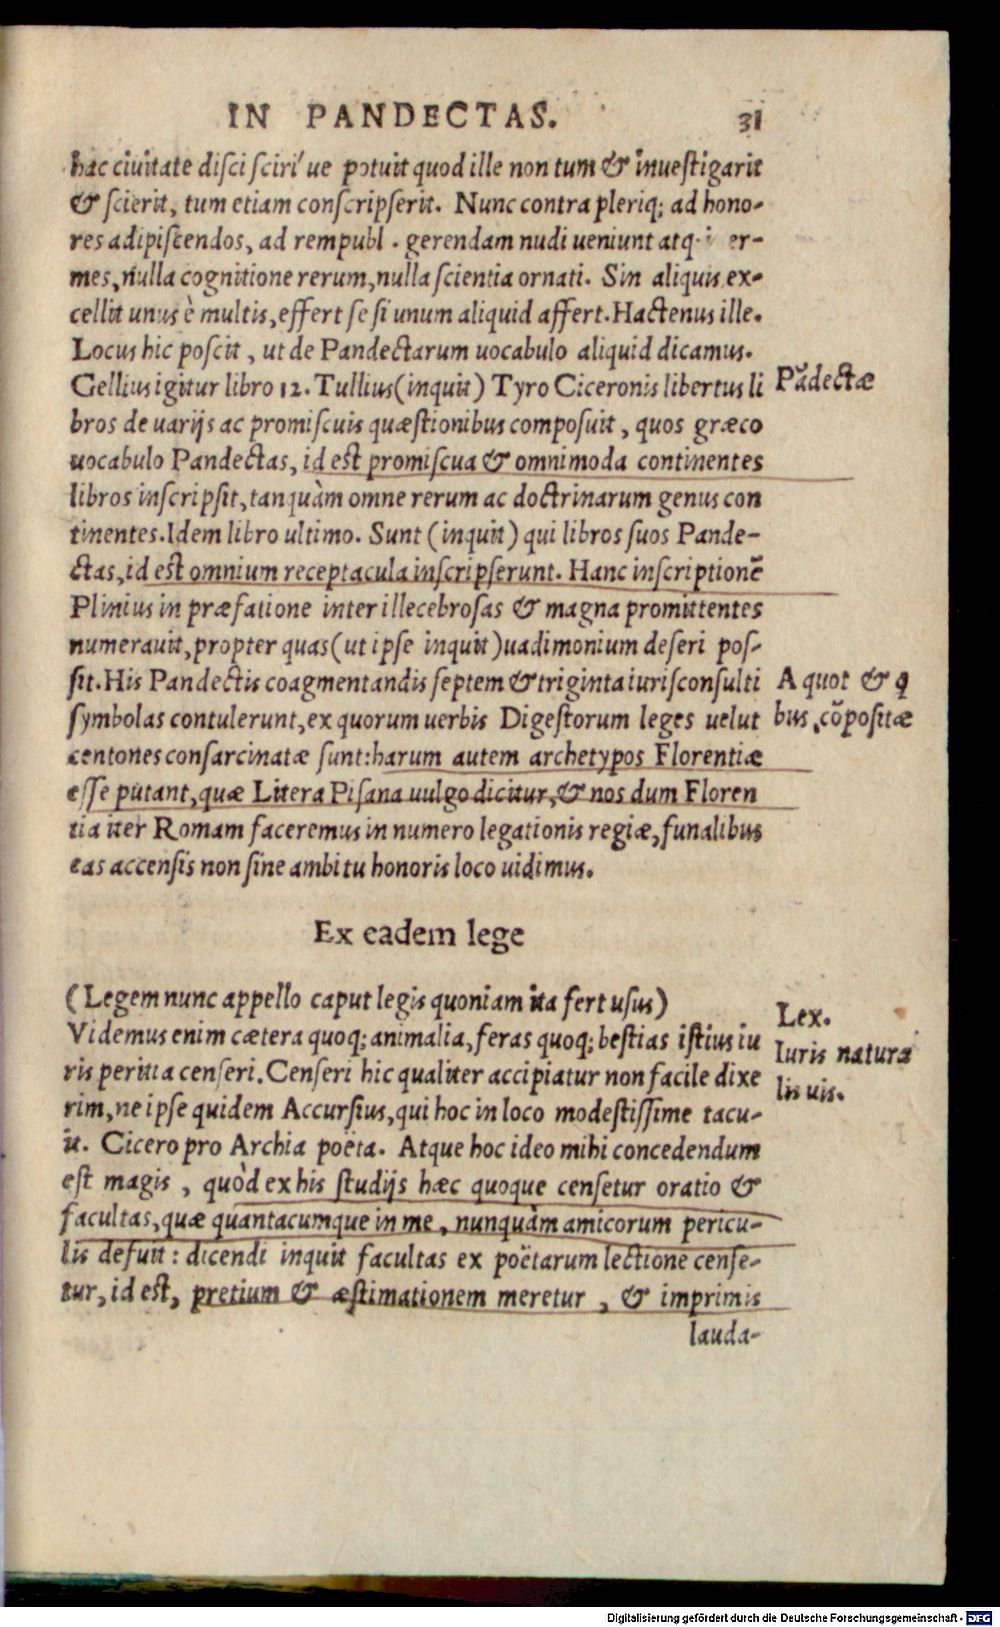 IN PANDECTAS. 31
hac ciuitate disci sciri ue potuit quod ille non tum & inuestigarit
& scierit, tum etiam conscripserit. Nunc contra pleriq; ad hono-
res adipiscendos, ad rempubl. gerendam nudi ueniunt atq er-
mes, nulla cognitione rerum, nulla scientia ornati. Sin aliquis ex-
cellit unus è multis, effert se si unum aliquid affert. Hactenus ille.
Locus hic poscit, ut de Pandectarum uocabulo aliquid dicamus.
Gellius igitur libro 12. Tullius (inquit) Tyro Ciceronis libertus li
bros de uarijs ac promiscuis quæstionibus composuit, quos græco
uocabulo Pandectas, id est promiscua & omnimoda continentes
libros inscripsit, tanquàm omne rerum ac doctrinarum genus con
tinentes. Idem libro ultimo. Sunt (inquit) qui libros suos Pande-
ctas, id est omnium receptacula inscripserunt. Hanc inscriptionē
Plinius in præfatione inter illecebrosas & magna promittentes
numerauit, propter quas (ut ipse inquit) uadimonium deseri pos-
sit. His Pandectis coagmentandis septem & triginta iurisconsulti
symbolas contulerunt, ex quorum uerbis Digestorum leges uelut
centones consarcinatæ sunt: harum autem archetypos Florentiæ
esse putant, quæ Litera Pisana uulgo dicitur, & nos dum Floren
tia iter Romam faceremus in numero legationis regiæ, funalibus
eas accensis non sine ambitu honoris loco uidimus.
Pādectæ
A quot & q
bus cōpositæ
Ex eadem lege
(Legem nunc appello caput legis quoniam ita fert usus)
Videmus enim cætera quoq; animalia, feras quoq; bestias istius iu
ris peritia censeri. Censeri hic qualiter accipiatur non facile dixe
rim, ne ipse quidem Accursius, qui hoc in loco modestissime tacu-
it. Cicero pro Archia poëta. Atque hoc ideo mihi concedendum
est magis, quòd ex his studijs hæc quoque censetur oratio &
facultas, quæ quantacumque in me, nunquàm amicorum pericu-
lis defuit: dicendi inquit facultas ex poëtarum lectione cense-
tur, id est, pretium & æstimationem meretur, & imprimis
lauda-
Lex.
Iuris natura
lis uis.
Digitalisierung gefördert durch die Deutsche Forschungsgemeinschaft - DFG